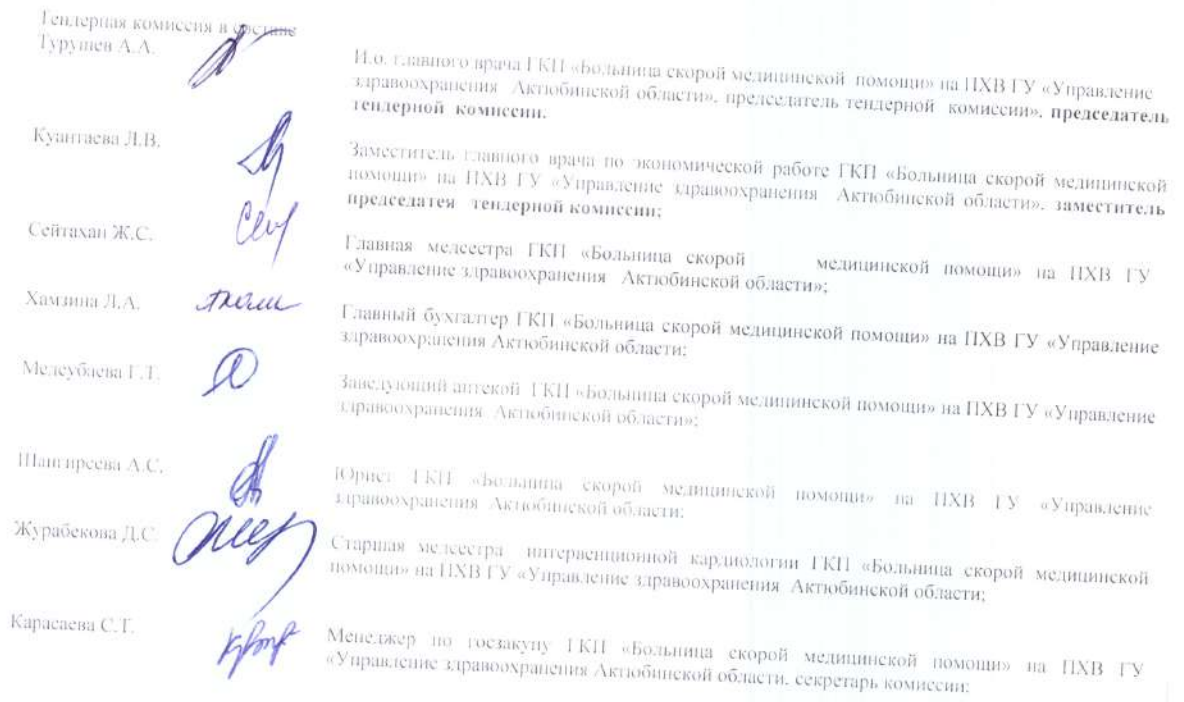 Тендерная комиссия в составе
Турушев А.А.
И.о. главного врача ГКП «Больница скорой медицинской помощи» на ПХВ ГУ «Управление
здравоохранения Актюбинской области», председатель тендерной комиссии», председатель
тендерной комиссии.
Куантаева Л.В.
Заместитель главного врача по экономической работе ГКП «Больница скорой медицинской
помощи» на ПХВ ГУ «Управление здравоохранения Актюбинской области», заместитель
председатея тендерной комиссии;
Сейтахан Ж.С.
Главная медсестра ГКП «Больница скорой медицинской помощи» на ПХВ ГУ
«Управление здравоохранения Актюбинской области»;
Хамзина Л.А.
Главный бухгалтер ГКП «Больница скорой медицинской помощи» на ПХВ ГУ «Управление
здравоохранения Актюбинской области;
Меdеубаева Г.Т.
Заведующий аптекой ГКП «Больница скорой медицинской помощи» на ПХВ ГУ «Управление
здравоохранения Актюбинской области»;
Шангиреева А.С.
Юрист ГКП «Больница скорой медицинской помощи» на ПХВ ГУ «Управление
здравоохранения Актюбинской области;
Журабекова Д.С.
Старшая медсестра интервенционной кардиологии ГКП «Больница скорой медицинской
помощи» на ПХВ ГУ «Управление здравоохранения Актюбинской области;
Карасаева С.Т.
Менеджер по госзакупу ГКП «Больница скорой медицинской помощи» на ПХВ ГУ
«Управление здравоохранения Актюбинской области, секретарь комиссии;